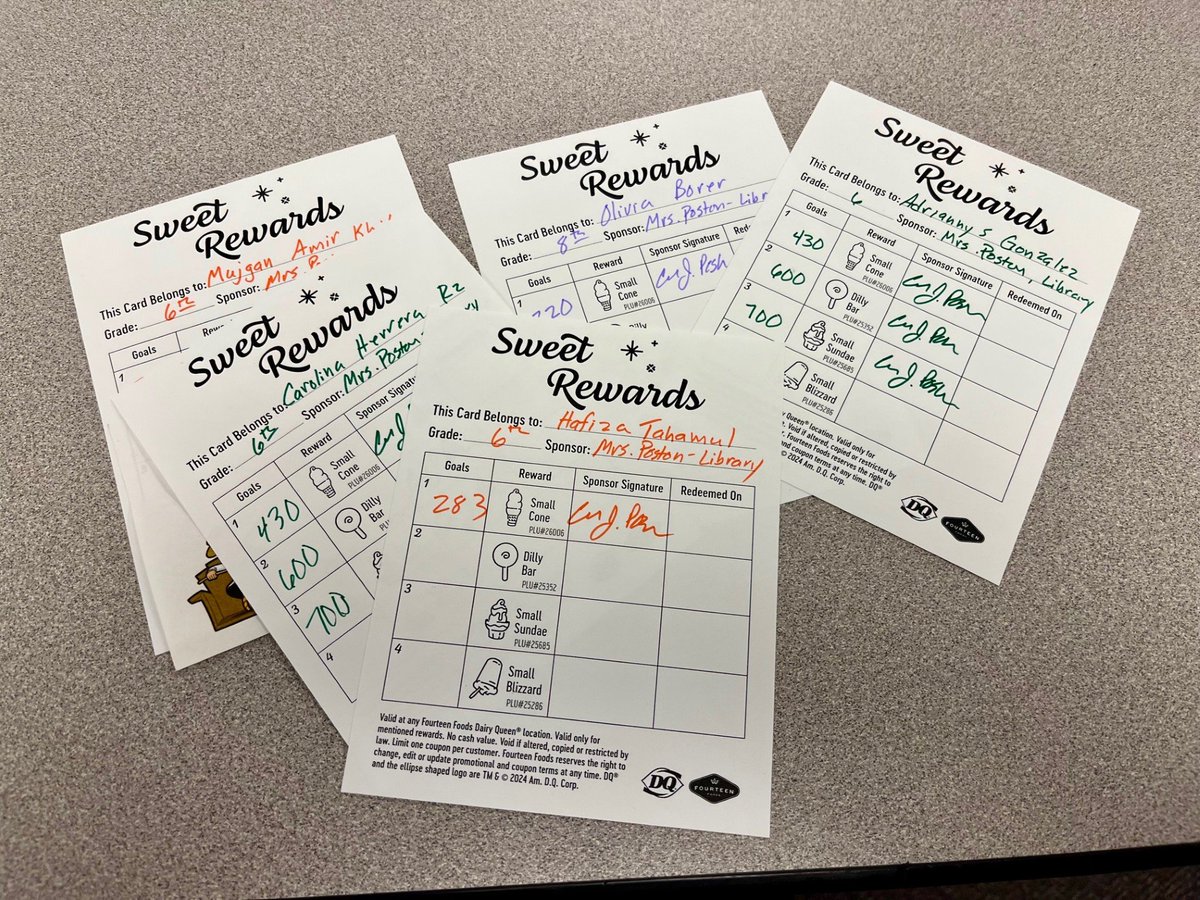 Sweet
Rewards
This Card Belongs to: Mujgan Amir
Grade: 6th Sponsor: Mrs.
Goals
1
Sweet
Rewards
This Card Belongs to: Carolina Herrera
Grade: 6th Sponsor: Mrs. Poston-
Goals Reward Sponsor Signature
1 430 Small
Cone
PLU#26006
2 600 Dilly
Bar
3 700
4
Sweet
Rewards
This Card Belongs to: Olivia Borer
Grade: 8th Sponsor: Mrs. Poston-Library
Goals Reward Sponsor Signature
1 Small
Cone
PLU#26006
Dilly
Sweet
Rewards
This Card Belongs to: Adrianny S Gonzalez
Grade: 6 Sponsor: Mrs. Poston, Library
Goals Reward Sponsor Signature Redeemed On
1 430 Small
Cone
PLU#26006
2 600 Dilly
Bar
PLU#25352
3 700 Small
Sundae
PLU#25685
4 Small
Blizzard
PLU#25286
Queen® location. Valid only for
Void if altered, copied or restricted by
Fourteen Foods reserves the right to
and coupon terms at any time. DQ®
© 2024 Am. D.Q. Corp.
DQ FOURTEEN
FOODS
Sweet
Rewards
This Card Belongs to: Hafiza Tahamul
Grade: 6th Sponsor: Mrs. Poston-Library
Goals Reward Sponsor Signature Redeemed On
1 283 Small
Cone
PLU#26006
2 Dilly
Bar
PLU#25352
3 Small
Sundae
PLU#25685
4 Small
Blizzard
PLU#25286
Valid at any Fourteen Foods Dairy Queen® location. Valid only for
mentioned rewards. No cash value. Void if altered, copied or restricted by
law. Limit one coupon per customer. Fourteen Foods reserves the right to
change, edit or update promotional and coupon terms at any time. DQ®
and the ellipse shaped logo are TM & © 2024 Am. D.Q. Corp.
DQ FOURTEEN
FOODS